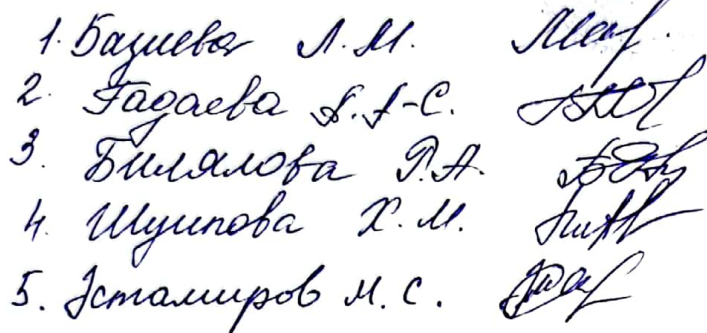 1. Базиева Л. М.
2. Гадаева А. А-С.
3. Билялова Р. А.
4. Шуипова Х. М.
5. Эстамиров М. С.